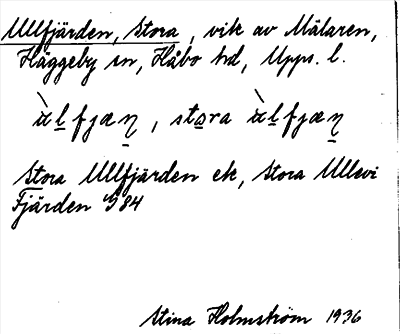 Ullfjärden, Stora, vik av Mälaren,
Häggeby sn, Håbo hd, Upps. l.
ùl̲fjæṇ, sto̲ra ùl̲fjæṇ
Stora Ullfjärden ek, Stora Ullevi
Fjärden G 84
Stina Holmström 1936